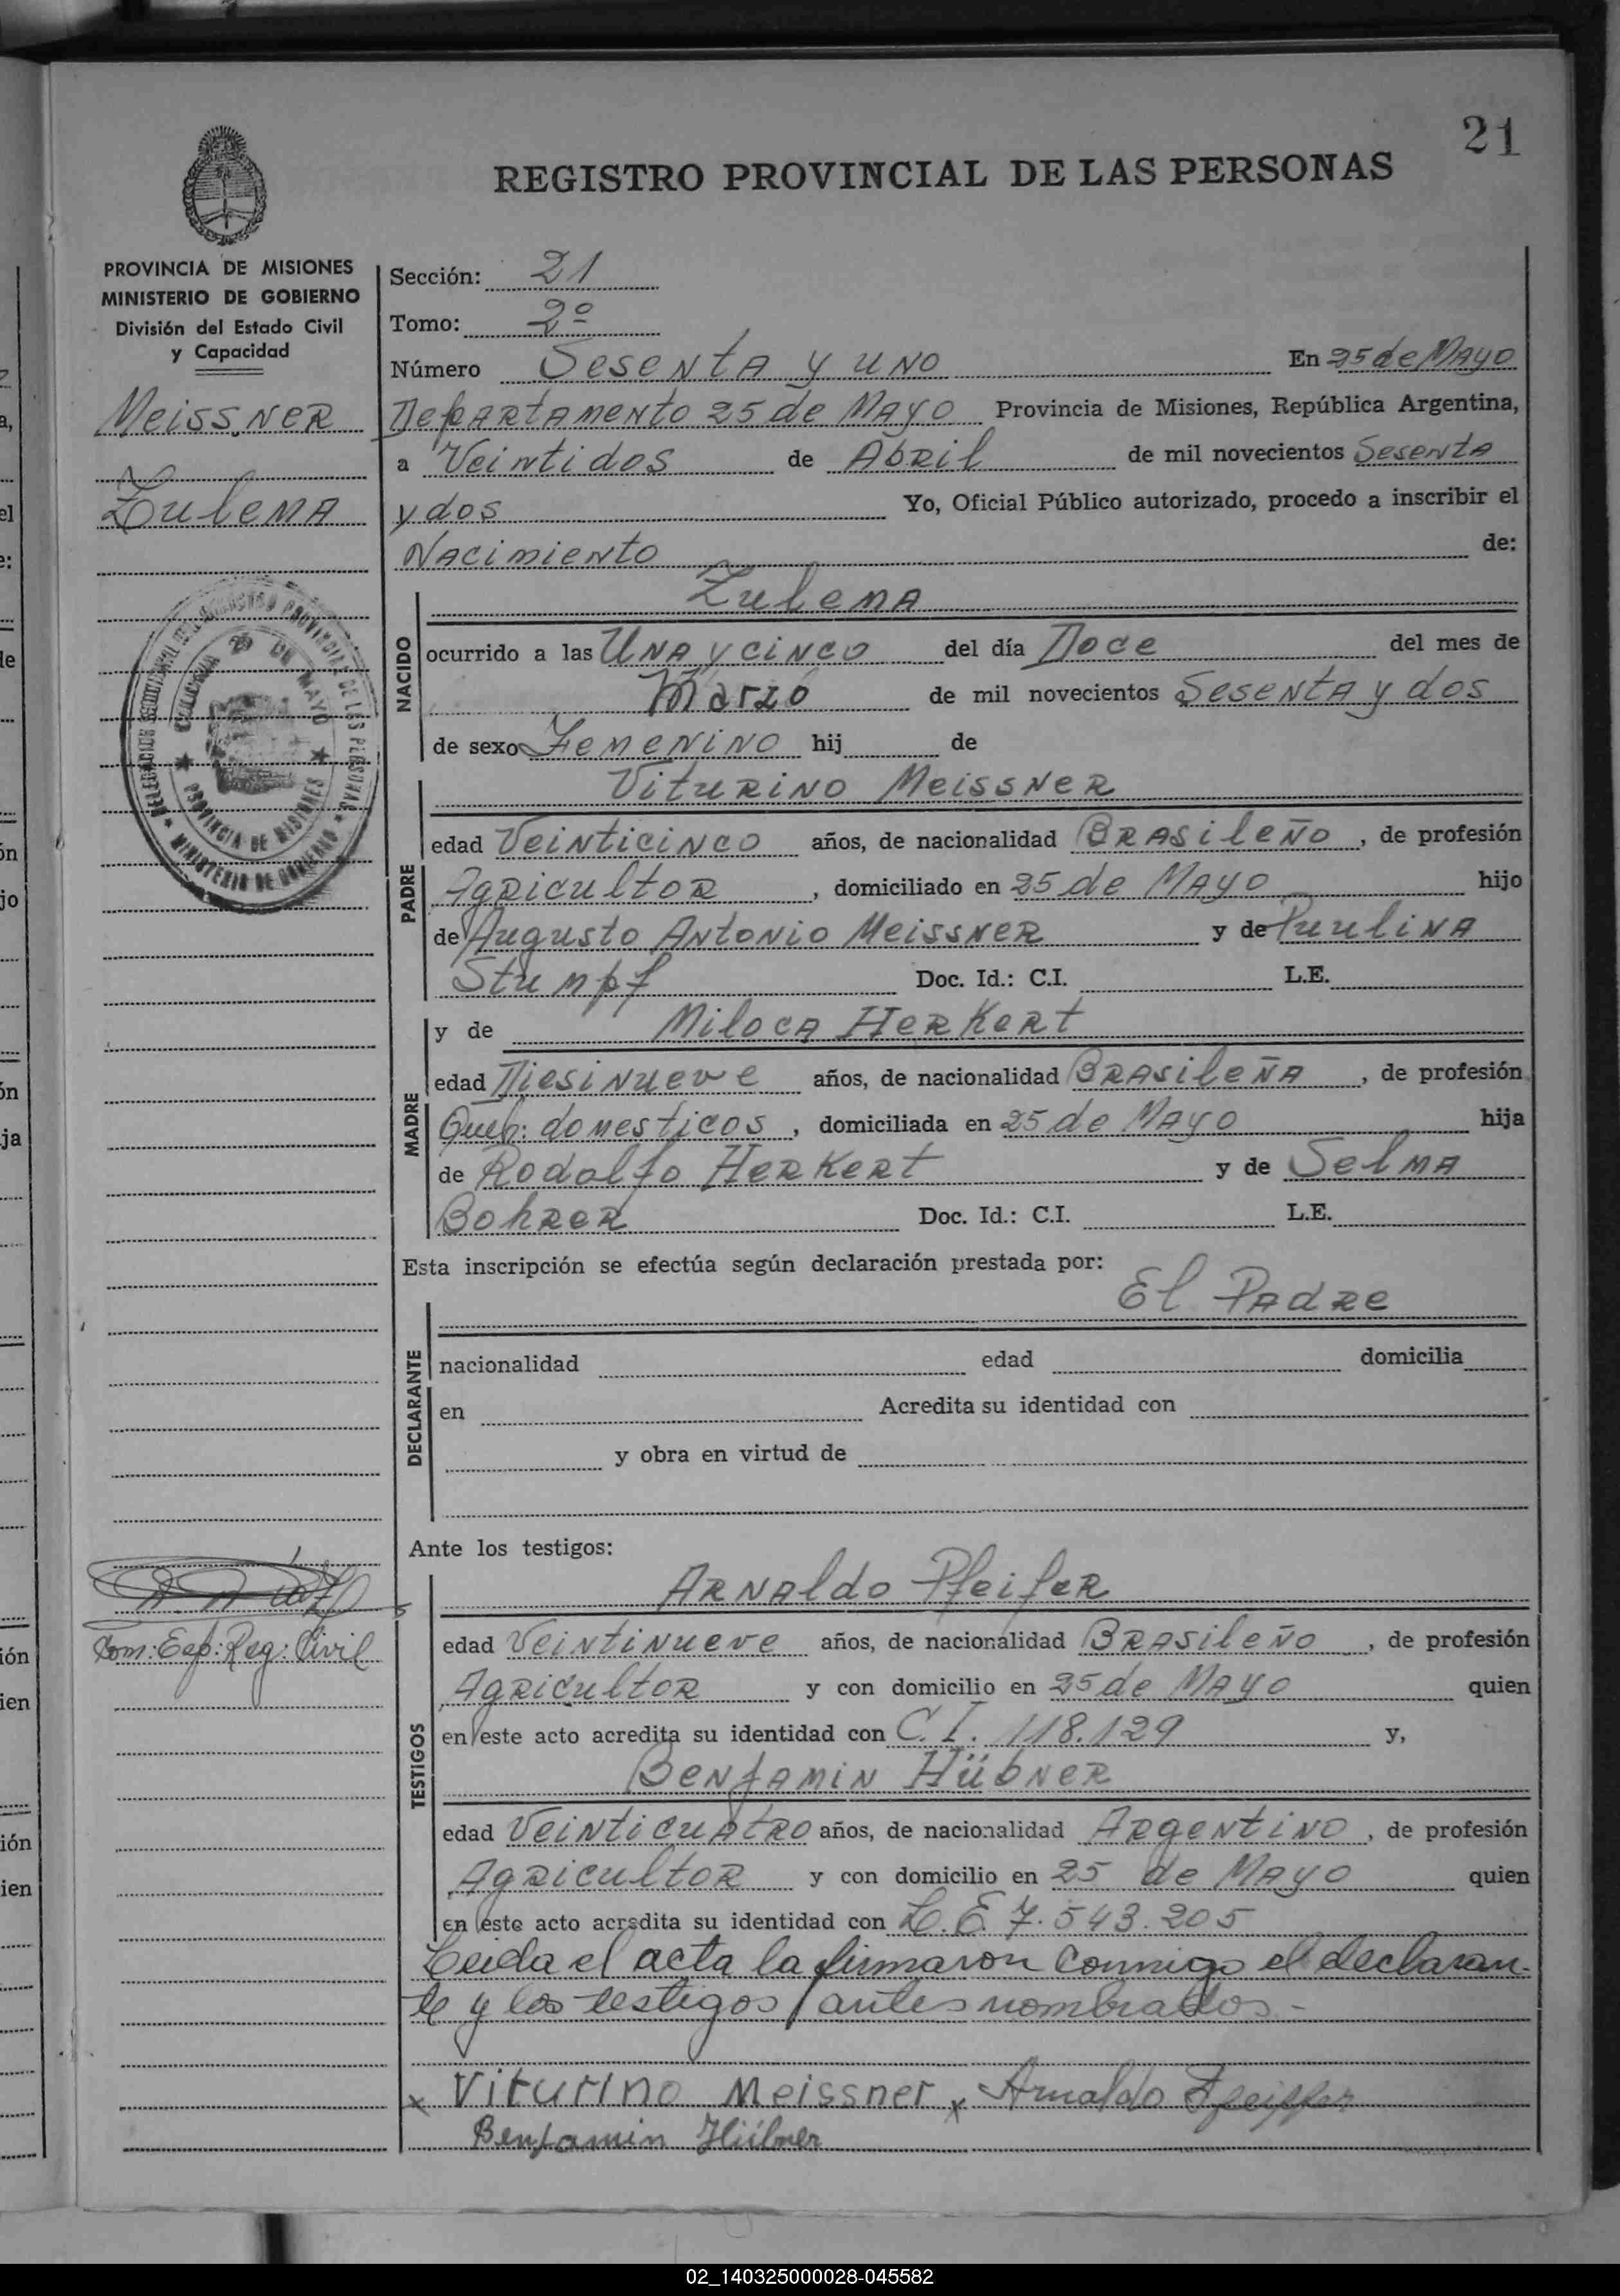 21
REGISTRO PROVINCIAL DE LAS PERSONAS
PROVINCIA DE MISIONES
MINISTERIO DE GOBIERNO
División del Estado Civil
y Capacidad
Meissner
Zulema
Sección: 21
Tomo: 2º
Número Sesenta y uno En 25 de Mayo
Departamento 25 de Mayo Provincia de Misiones, República Argentina,
a Veintidos de Abril de mil novecientos Sesenta
y dos Yo, Oficial Público autorizado, procedo a inscribir el
Nacimiento de:
NACIDO
Zulema
ocurrido a las Una y cinco del día Doce del mes de
Marzo de mil novecientos Sesenta y dos
de sexo Femenino hij de
PADRE
Viturino Meissner
edad Veinticinco años, de nacionalidad Brasileño, de profesión
Agricultor, domiciliado en 25 de Mayo hijo
de Augusto Antonio Meissner y de Paulina
Stumpf Doc. Id.: C.I. L.E.
MADRE
y de Miloca Herkert
edad Diesinueve años, de nacionalidad Brasileña, de profesión
Queh: domesticos, domiciliada en 25 de Mayo hija
de Rodolfo Herkert y de Selma
Bohrer Doc. Id.: C.I. L.E.
Esta inscripción se efectúa según declaración prestada por:
El Padre
DECLARANTE
nacionalidad edad domicilia
en Acredita su identidad con
y obra en virtud de
Ante los testigos:
TESTIGOS
Arnaldo Pfeifer
edad Veintinueve años, de nacionalidad Brasileño, de profesión
Agricultor y con domicilio en 25 de Mayo quien
en este acto acredita su identidad con C.I. 118.129 y,
Benjamin Hübner
edad Veinticuatro años, de nacionalidad Argentino, de profesión
Agricultor y con domicilio en 25 de Mayo quien
en este acto acredita su identidad con L.E. 7.543.205
Leida el acta la firmaron conmigo el declaran-
te y los testigos antes nombrados.-
x Viturino Meissner x Arnaldo Pfeiffer
Benjamin Hübner
Reg: Civil
25 DE MAYO
PROVINCIA DE MISIONES
MINISTERIO DE GOBIERNO
02_140325000028-045582